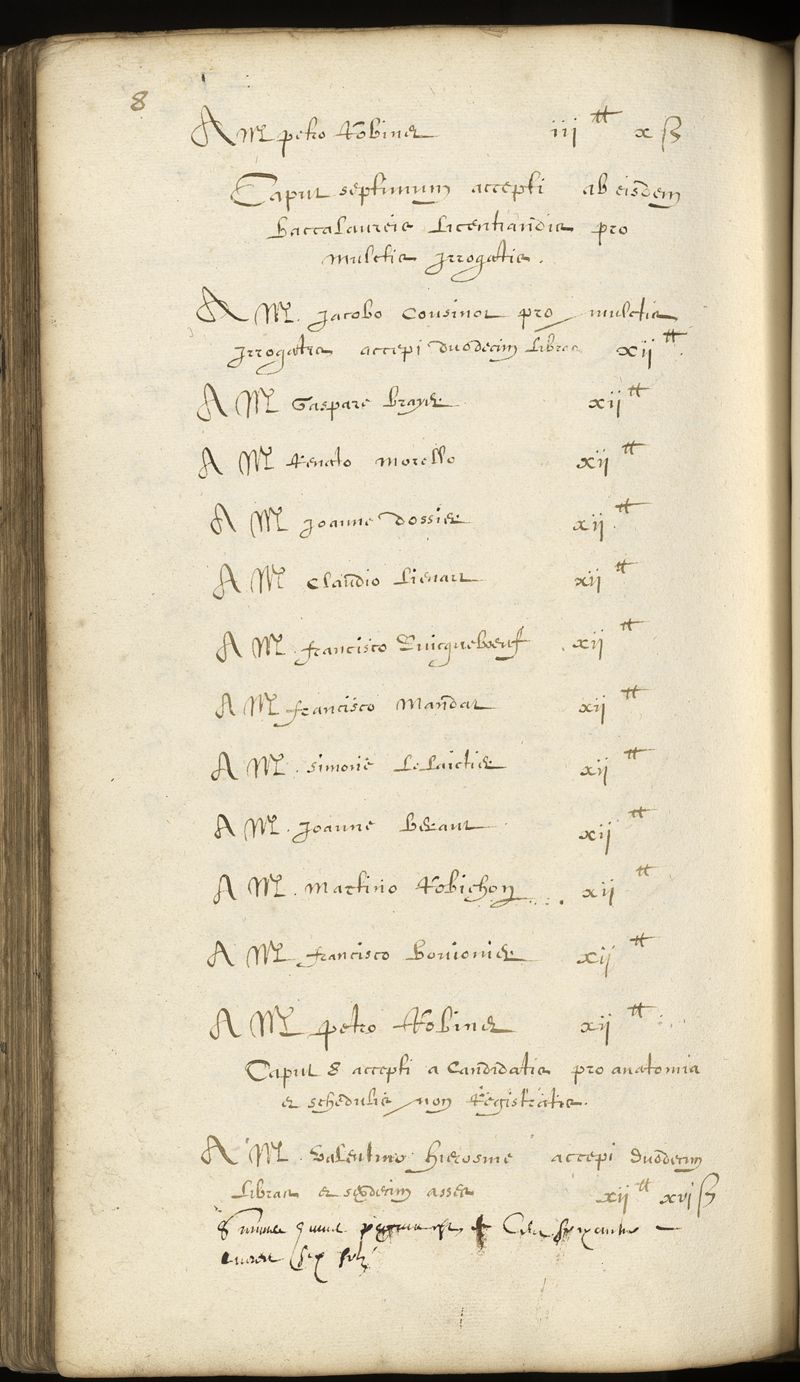 8
A M. petro Robinet iij ₶ x ß
Caput septimum accepti ab eisdem
Baccalaureis Licentiandis pro
mulctis Irrogatis.
A M. Jacobo Cousinot pro mulctis
Irrogatis accepi duodecim Libras xij ₶
A M Gaspare Brayet xij ₶
A M Renato morello xij ₶
A M Joanne Dossier xij ₶
A M Claudio Lienart xij ₶
A M. francisco Quicqueboeuf xij ₶
A M francisco Mandat xij ₶
A M. Simone Le Laictier xij ₶
A M. Joanne Beraut xij ₶
A M. Martino Robichon xij ₶
A M. francisco Bouionier xij ₶
A M petro Robinet xij ₶
Caput 8 accepti a Candidatis pro anatomia
et schedulis non Registratis.
A M. Valentino hierosme accepi duodecim
Libras et sexdecim asses xij ₶ xvi ß
Summa
sex